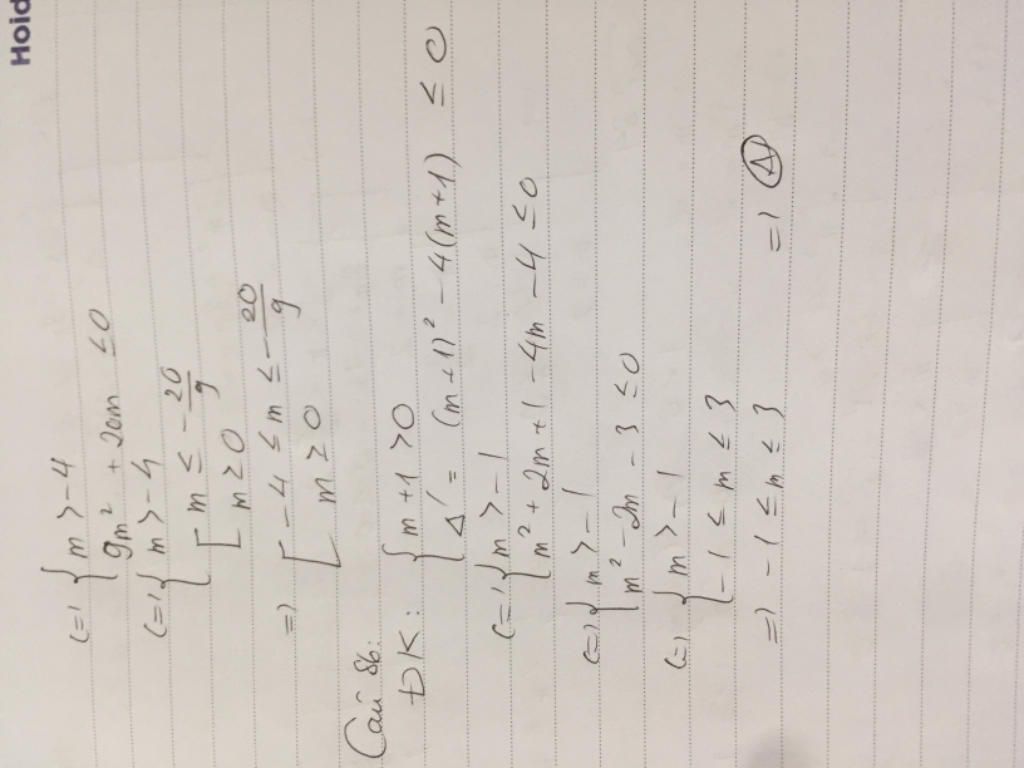 Hoid
(=) { m > -4
9m² + 20m ≤ 0
(=) { m > -4
[ m ≤ -20/9
m ≥ 0
=) [ -4 ≤ m ≤ -20/9
m ≥ 0
Câu 86:
ĐK: { m + 1 > 0
Δ' = (m+1)² - 4(m+1) ≤ 0
(=) { m > -1
m² + 2m + 1 - 4m - 4 ≤ 0
(=) { m > -1
m² - 2m - 3 ≤ 0
(=) { m > -1
-1 ≤ m ≤ 3
=) -1 ≤ m ≤ 3 =) A